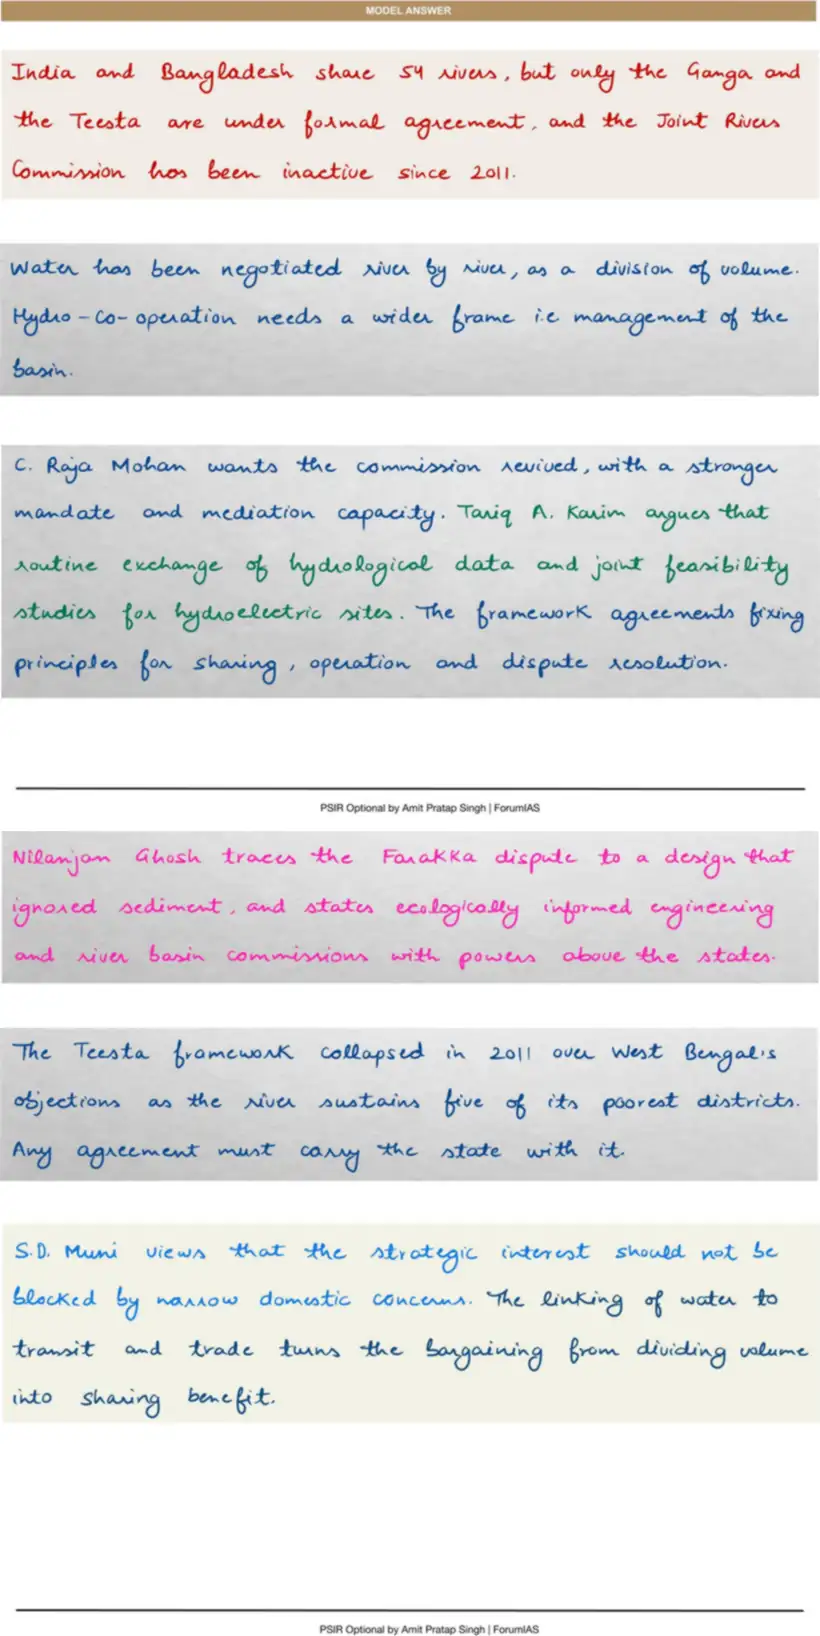 MODEL ANSWER
India and Bangladesh share 54 rivers, but only the Ganga and
the Teesta are under formal agreement, and the Joint Rivers
Commission has been inactive since 2011.
Water has been negotiated river by river, as a division of volume.
Hydro-co-operation needs a wider frame i.e management of the
basin.
C. Raja Mohan wants the commission revived, with a stronger
mandate and mediation capacity. Tariq A. Karim argues that
routine exchange of hydrological data and joint feasibility
studies for hydroelectric sites. The framework agreements fixing
principles for sharing, operation and dispute resolution.
PSIR Optional by Amit Pratap Singh | ForumIAS
Nilanjan Ghosh traces the Farakka dispute to a design that
ignored sediment, and states ecologically informed engineering
and river basin commissions with powers above the states.
The Teesta framework collapsed in 2011 over West Bengal's
objections as the river sustains five of its poorest districts.
Any agreement must carry the state with it.
S.D. Muni views that the strategic interest should not be
blocked by narrow domestic concerns. The linking of water to
transit and trade turns the bargaining from dividing volume
into sharing benefit.
PSIR Optional by Amit Pratap Singh | ForumIAS